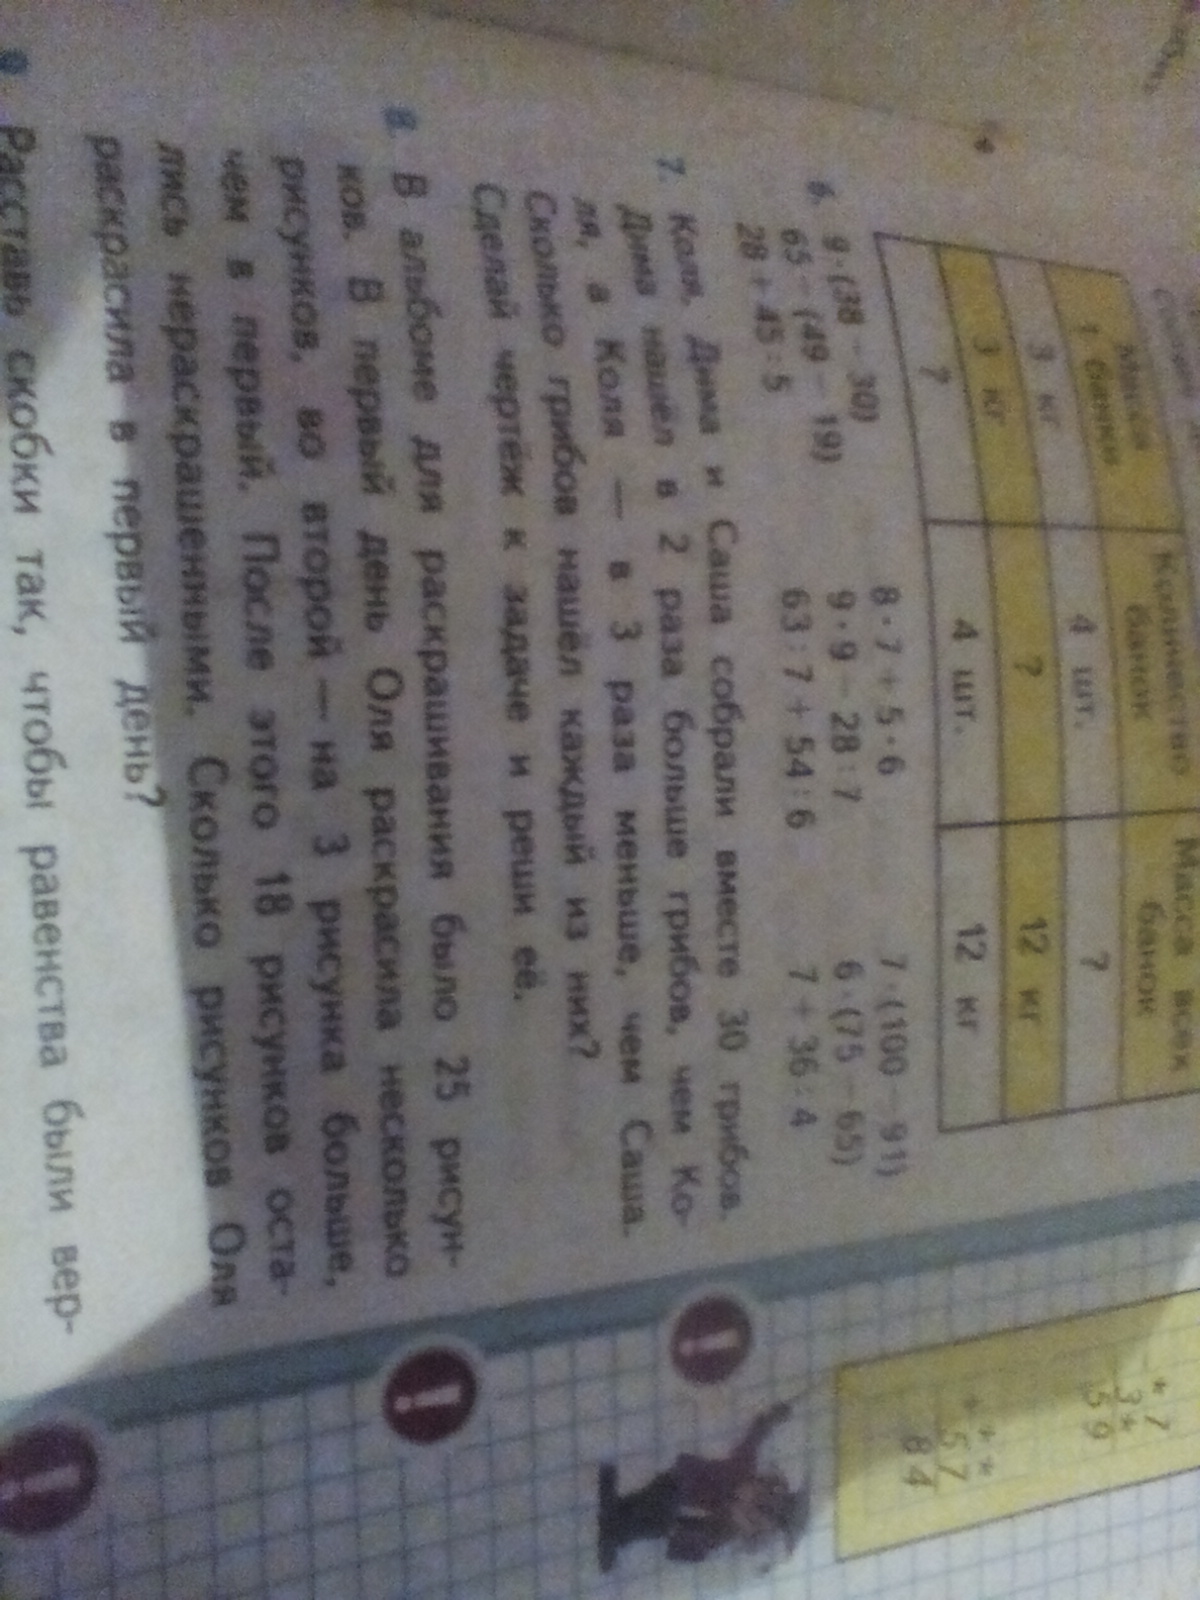 Масса
1 банки
Количество
банок
Масса всех
банок
3 кг
4 шт.
?
3 кг
?
12 кг
?
4 шт.
12 кг
6. 9·(38 − 30) 8·7 + 5·6 7·(100 − 91)
65 − (49 − 19) 9·9 − 28:7 6·(75 − 65)
28 + 45:5 63:7 + 54:6 7 + 36:4
7. Коля, Дима и Саша собрали вместе 30 грибов.
Дима нашёл в 2 раза больше грибов, чем Ко-
ля, а Коля — в 3 раза меньше, чем Саша.
Сколько грибов нашёл каждый из них?
Сделай чертёж к задаче и реши её.
8. В альбоме для раскрашивания было 25 рисун-
ков. В первый день Оля раскрасила несколько
рисунков, во второй — на 3 рисунка больше,
чем в первый. После этого 18 рисунков оста-
лись нераскрашенными. Сколько рисунков Оля
раскрасила в первый день?
9. Расставь скобки так, чтобы равенства были вер-
*7
3*
59
**
57
84
!
!
!